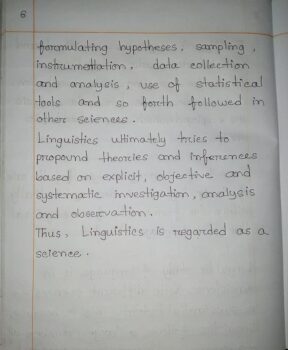 6
formulating hypotheses, sampling,
instrumentation, data collection
and analysis, use of statistical
tools and so forth followed in
other sciences.
Linguistics ultimately tries to
propound theories and inferences
based on explicit, objective and
systematic investigation, analysis
and observation.
Thus, Linguistics is regarded as a
science.